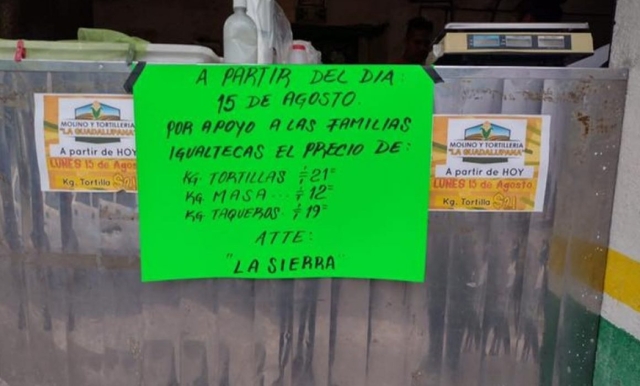 A PARTIR DEL DIA:
15 DE AGOSTO.
POR APOYO A LAS FAMILIAS
IGUALTECAS EL PRECIO DE:
KG. TORTILLAS $21=
KG. MASA... $12=
KG. TAQUEROS. $19=
ATTE:
"LA SIERRA"
MOLINO Y TORTILLERIA
"LA GUADALUPANA"
A partir de HOY
LUNES 15 de Agos
Kg. Tortilla $21
MOLINO Y TORTILLERIA
"LA GUADALUPANA"
A partir de HOY
LUNES 15 de Agosto
Kg. Tortilla $21